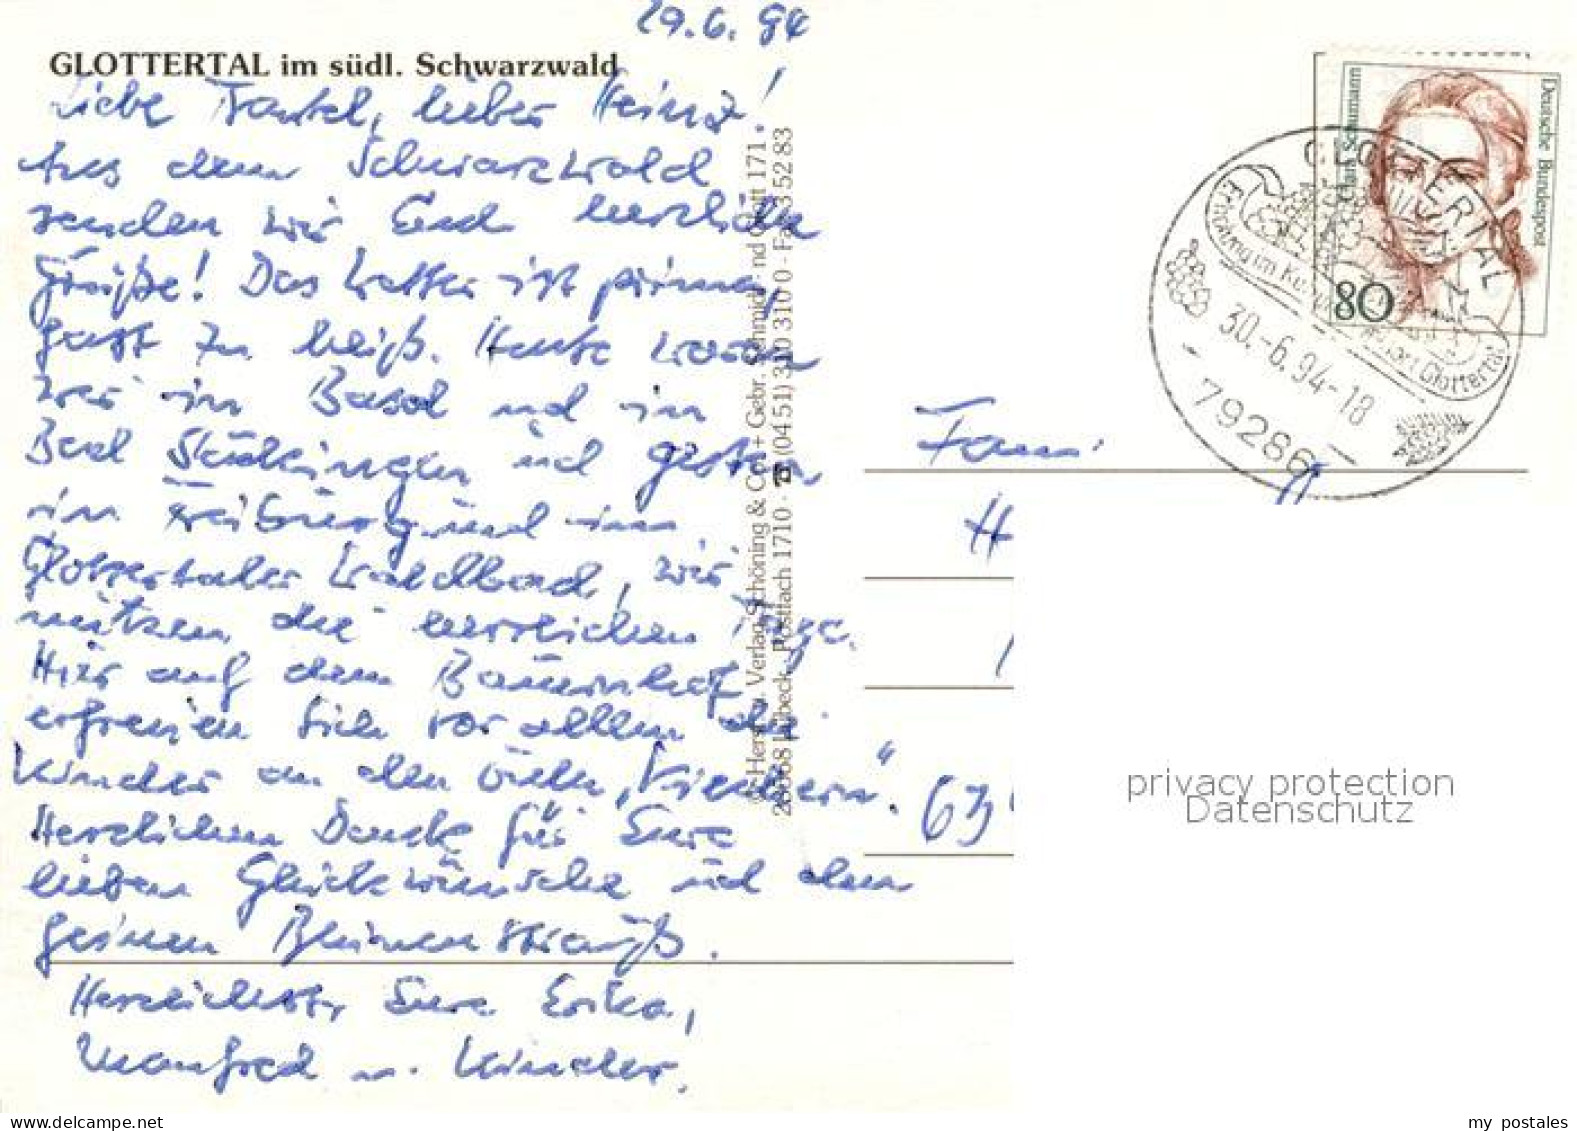 29.6.94
GLOTTERTAL im südl. Schwarzwald
Liebe Bärbel, lieber Heinz!
Aus dem Schwarzwald
senden wir Euch herzliche
Grüße! Das Wetter ist prima,
fast zu heiß. Heute waren
wir in Basel und in
Bad Säckingen und gestern
in Freiburg und im
Glottertaler Waldbad, wir
nützen die herrlichen Tage.
Hier auf dem Bauernhof
erfreuen sich vor allem die
Kinder an den vielen „Viechern“.
Herzlichen Dank für Eure
lieben Glückwünsche und den
feinen Blumenstrauß.
Herzlichst, Eure Erika,
Manfred u. Kinder.
Verlag Schöning & Co + Gebr. Schmidt
Lübeck · Postfach 1710 · ☎ (0451) 310 310
Deutsche Bundespost
Clara Schumann
80
GLOTTERTAL
30.-6.94-18
79286
Fam.
H
63
privacy protection
Datenschutz
my postales